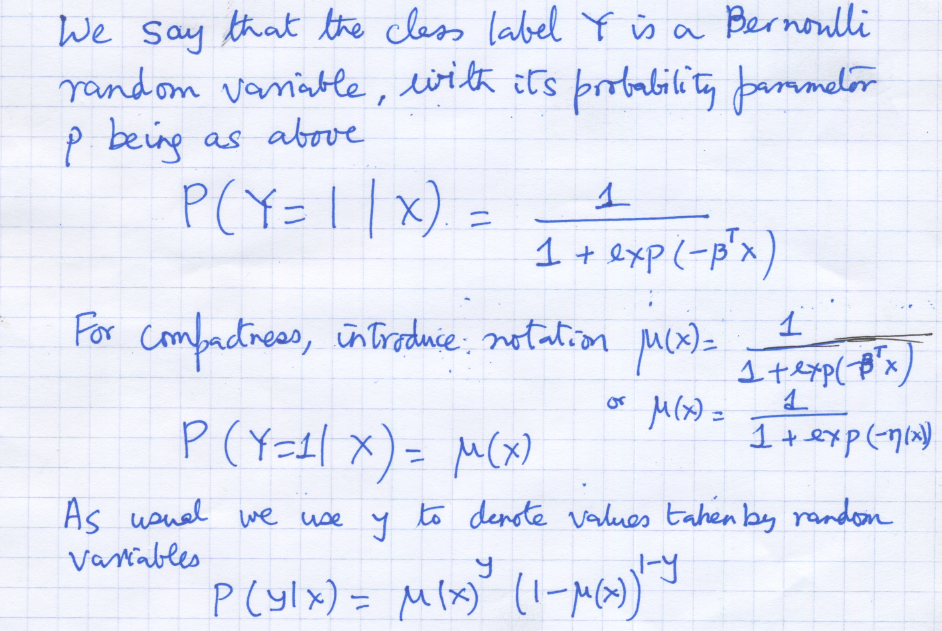 We say that the class label Y is a Bernoulli
random variable, with its probability parameter
p being as above
P(Y=1|X) = 1 / (1 + exp(-β^T x))
For compactness, introduce notation μ(x) = 1 / (1 + exp(-β^T x))
or μ(x) = 1 / (1 + exp(-η(x)))
P(Y=1|X) = μ(x)
As usual we use y to denote values taken by random
variables
P(y|x) = μ(x)^y (1-μ(x))^1-y